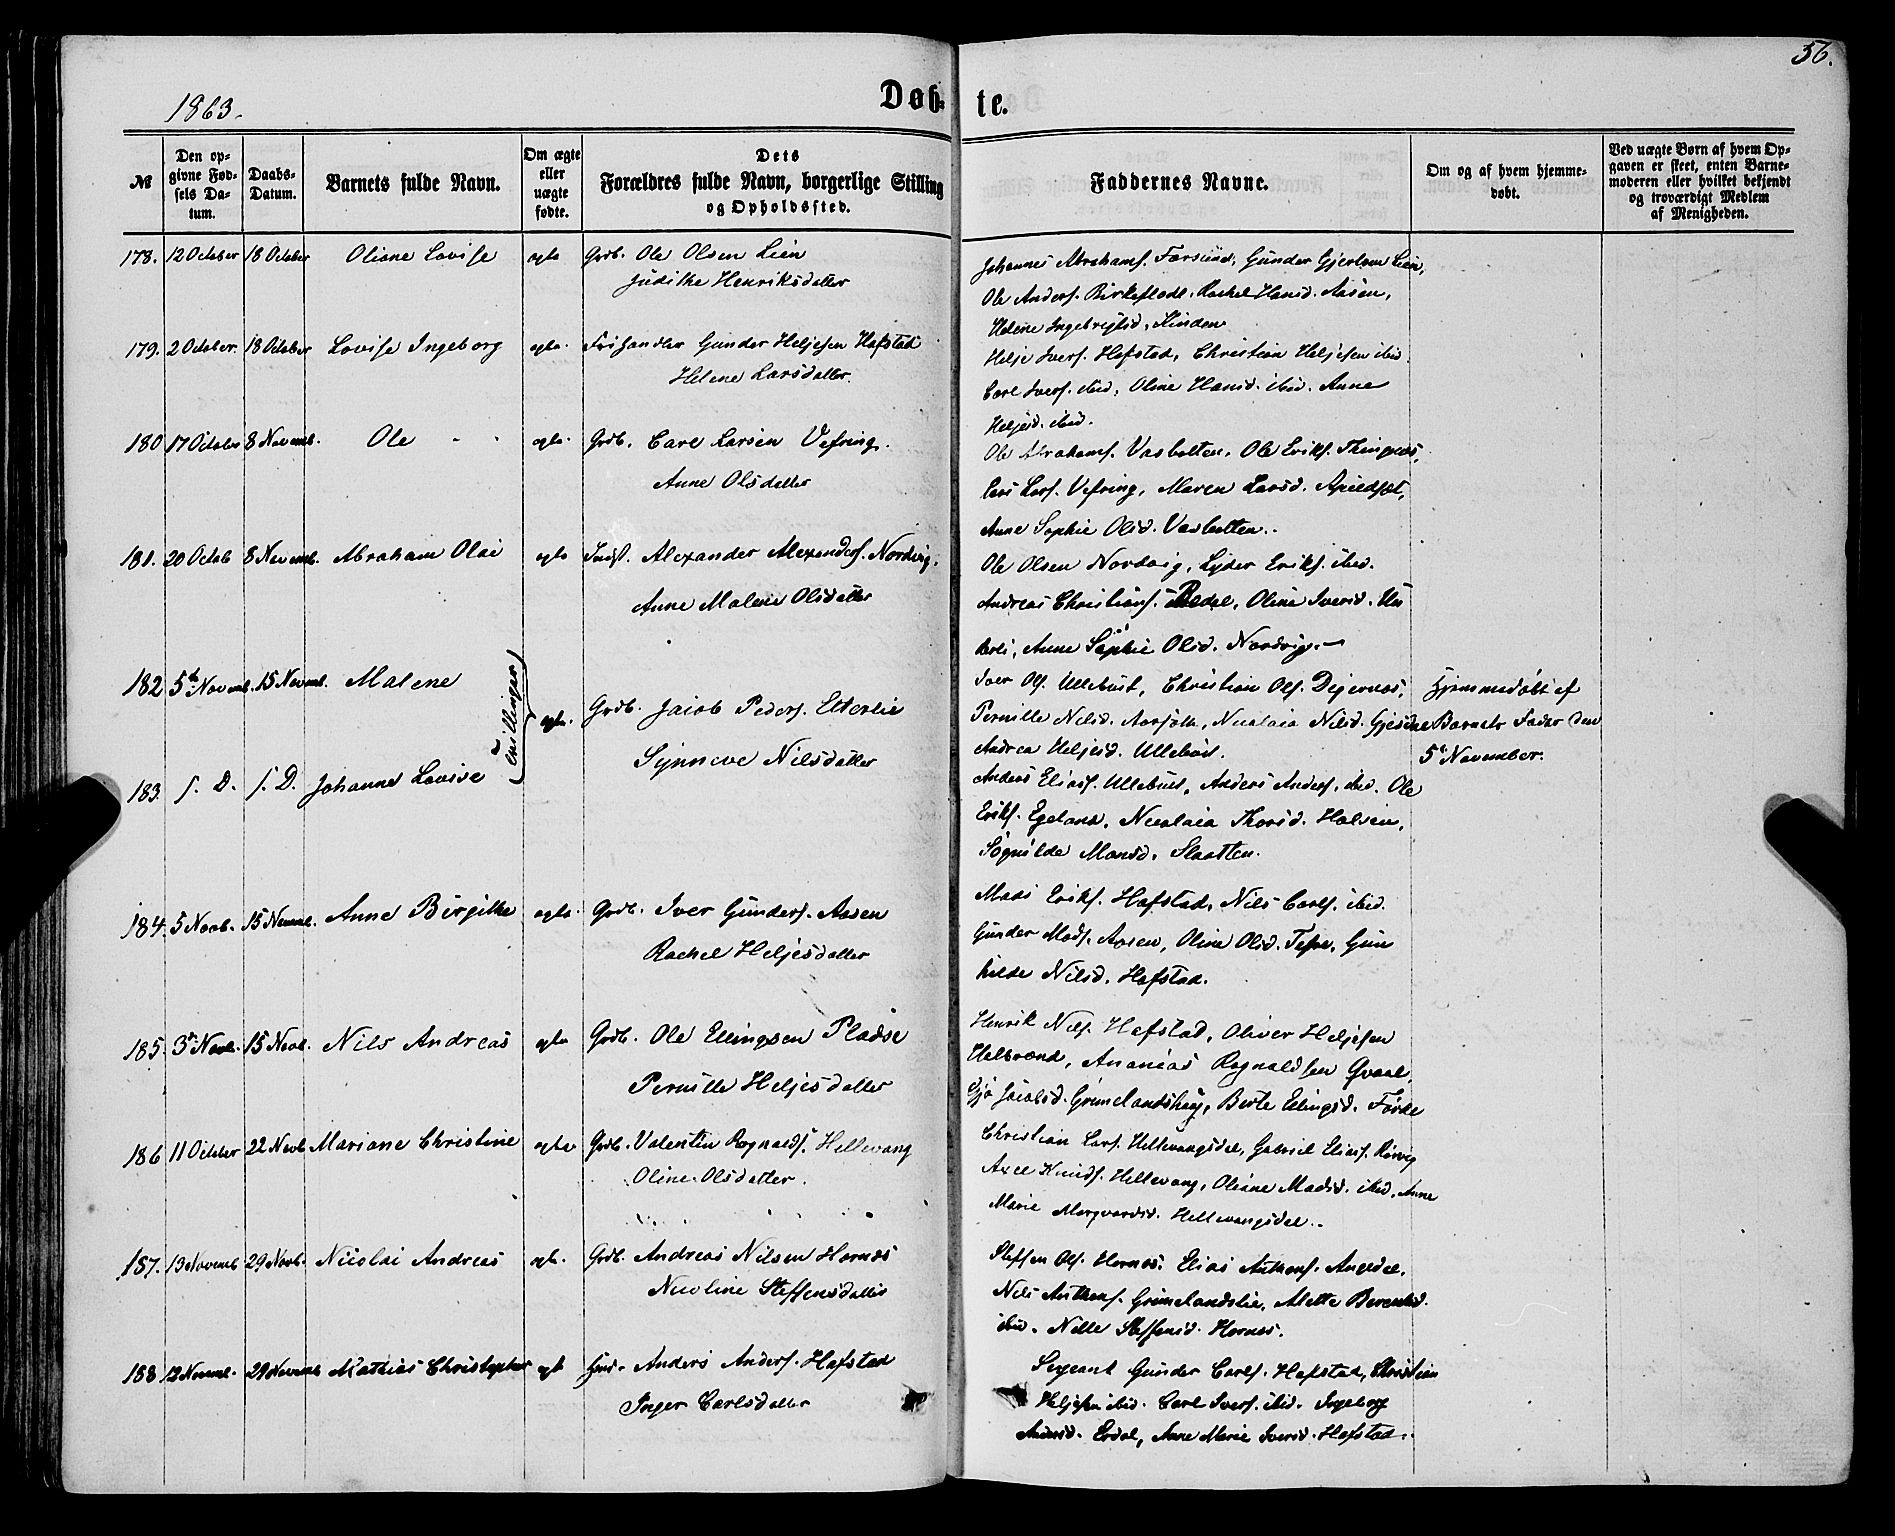 56.
1863.
Døb- te.
№
Den op-
givne Fød-
sels Da-
tum.
Daabs-
Datum.
Barnets fulde Navn.
Om ægte
eller
uægte
fødte.
Dets
Forældres fulde Navn, borgerlige Stilling
og Opholdssted.
Faddernes Navne.
Om og af hvem hjemme-
døbt.
Ved uægte Børn af hvem Op-
gaven er skeet, enten Barne-
moderen eller hvilket bekjendt
og troværdigt Medlem
af Menigheden.
178. 12 October 18 October Oliane Lovise ægte Grdb. Ole Olsen Lien
Judithe Henriksdatter
Johannes Abrahams. Farsund, Gunder Gjertsen Lien,
Ole Anders. Birkeflodt, Rachel Hansd. Aasen,
Helene Ingebrigtsd. Kinden
179. 2 October. 18 October Lovise Ingeborg ægte. Frihandler Gunder Heljesen Hafstad
Helene Larsdatter.
Helje Ivers. Hafstad, Christian Heljesen ibid.
Carl Ivers. ibid, Oline Hansd. ibid. Anne
Heljesd. ibid.
180 17 October 8 Novemb. Ole - - ægte. Grdb. Carl Larsen Vefring.
Anne Olsdatter
Ole Abrahams. Vasbotten, Ole Eriks. Thingnæs,
Lars Lars. Vefring, Maren Larsd. Apildset,
Anne Sophie Olsd. Vasbotten.
181. 20 Octob 8 Novemb. Abraham Olai ægte Indst. Alexander Alexanders. Nordvig.
Anne Malene Olsdatter
Ole Olsen Nordvig, Lyder Eriks. ibid.
Andreas Christians. Redal, Oline Iversd. Un
derli, Anne Sophie Olsd. Nordvig.
182 5te Novemb. 15 Novmb. Malene
Tvillinger
ægte. Grdb. Jacob Peders. Etterlie
Synneve Nilsdatter
Iver Ols. Ullebust, Christian Ols. Dejernæs,
Pernille Nilsd. Aarsjøtte, Nicolaia Nilsd. Gjesdal
Andrea Heljesd. Ullebust.
Hjemmedøbt af
Barnets Fader den
5te November.
183. s. D. s. D. Johanne Lovise
Anders Elias. Ullebust, Anders Anders. ibid. Ole
Eriks. Egeland, Nicolaia Thorsd. Halsen,
Søgnilde Monsd. Slaatten.
184. 5 Novb. 15 Novemb. Anne Birgithe ægte. Grdb. Iver Gunders. Aasen
Rachel Heljesdatter
Mads Eriks. Hafstad, Nils Carls. ibid.
Gunder Mads. Aasen, Oline Olsd. Tefre, Gun
hilde Nilsd. Hafstad.
185. 3die Novb. 15 Novb. Nils Andreas ægte Grdb. Ole Ellingsen Pladse
Pernille Heljesdatter
Henrik Nils. Hafstad, Oliver Heljesen
Halbrend, Ananias Rognaldsen Qvaal,
Gjø Jacobsd. Grimelandshaug, Berte Ellingsd. Førde
186 11 October 22 Novb Mariane Christine ægte Grdb. Valentin Rognalds. Hellevang
Oline Olsdatter.
Christian Lars. Hellevangsdal, Gabriel Elias. Rørvig
Axel Knuds. Hellevang, Oliane Madsd. ibid, Anne
Marie Marqvardsd. Hellevangsdal.
187. 13 Novemb 29 Novb. Nicolai Andreas ægte. Grdb. Andreas Nilsen Hornæs
Nicoline Steffensdatter
Steffen Ols. Hornæs, Elias Anthons. Angedal,
Nils Anthons. Grimelandslie, Alette Berentsd.
ibid. Nille Steffensd. Hornæs.
188 12 Novemb. 29 Novemb Mathias Christopher ægte Husm. Anders Anders. Hafstad
Inger Carlsdatter
Sergeant Gunder Carls. Hafstad, Christian
Heljesen ibid. Carl Ivers. ibid. Ingeborg
Andersd. Erdal, Anne Marie Iversd. Hafstad.